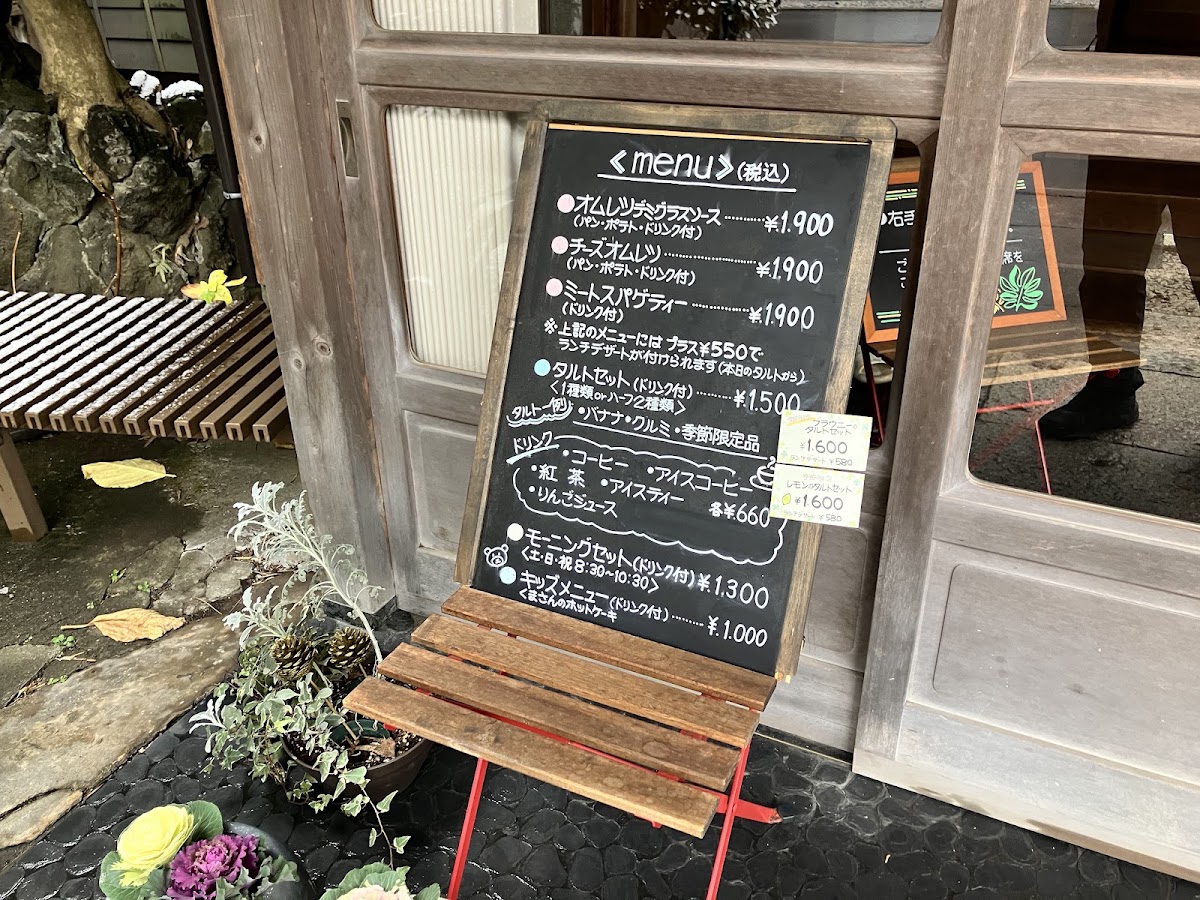 <menu>(税込)
オムレツデミグラスソース ¥1.900
(パン・ポテト・ドリンク付)
チーズオムレツ ¥1.900
(パン・ポテト・ドリンク付)
ミートスパゲティー ¥1.900
(ドリンク付)
※上記のメニューには プラス¥550で
ランチデザートが付けられます(本日のタルトから)
タルトセット(ドリンク付) ¥1.500
<1種類orハーフ2種類>
タルト一例 ・バナナ・クルミ・季節限定品
ドリンク
・コーヒー ・アイスコーヒー
・紅茶 ・アイスティー
・りんごジュース 各¥660
モーニングセット(ドリンク付) ¥1.300
<土・日・祝 8:30~10:30>
キッズメニュー(ドリンク付) ¥1.000
くまさんのホットケーキ
ブラウニーの
タルトセット
¥1.600
ランチデザート ¥580
レモンのタルトセット
¥1.600
ランチデザート ¥580
右手
席を